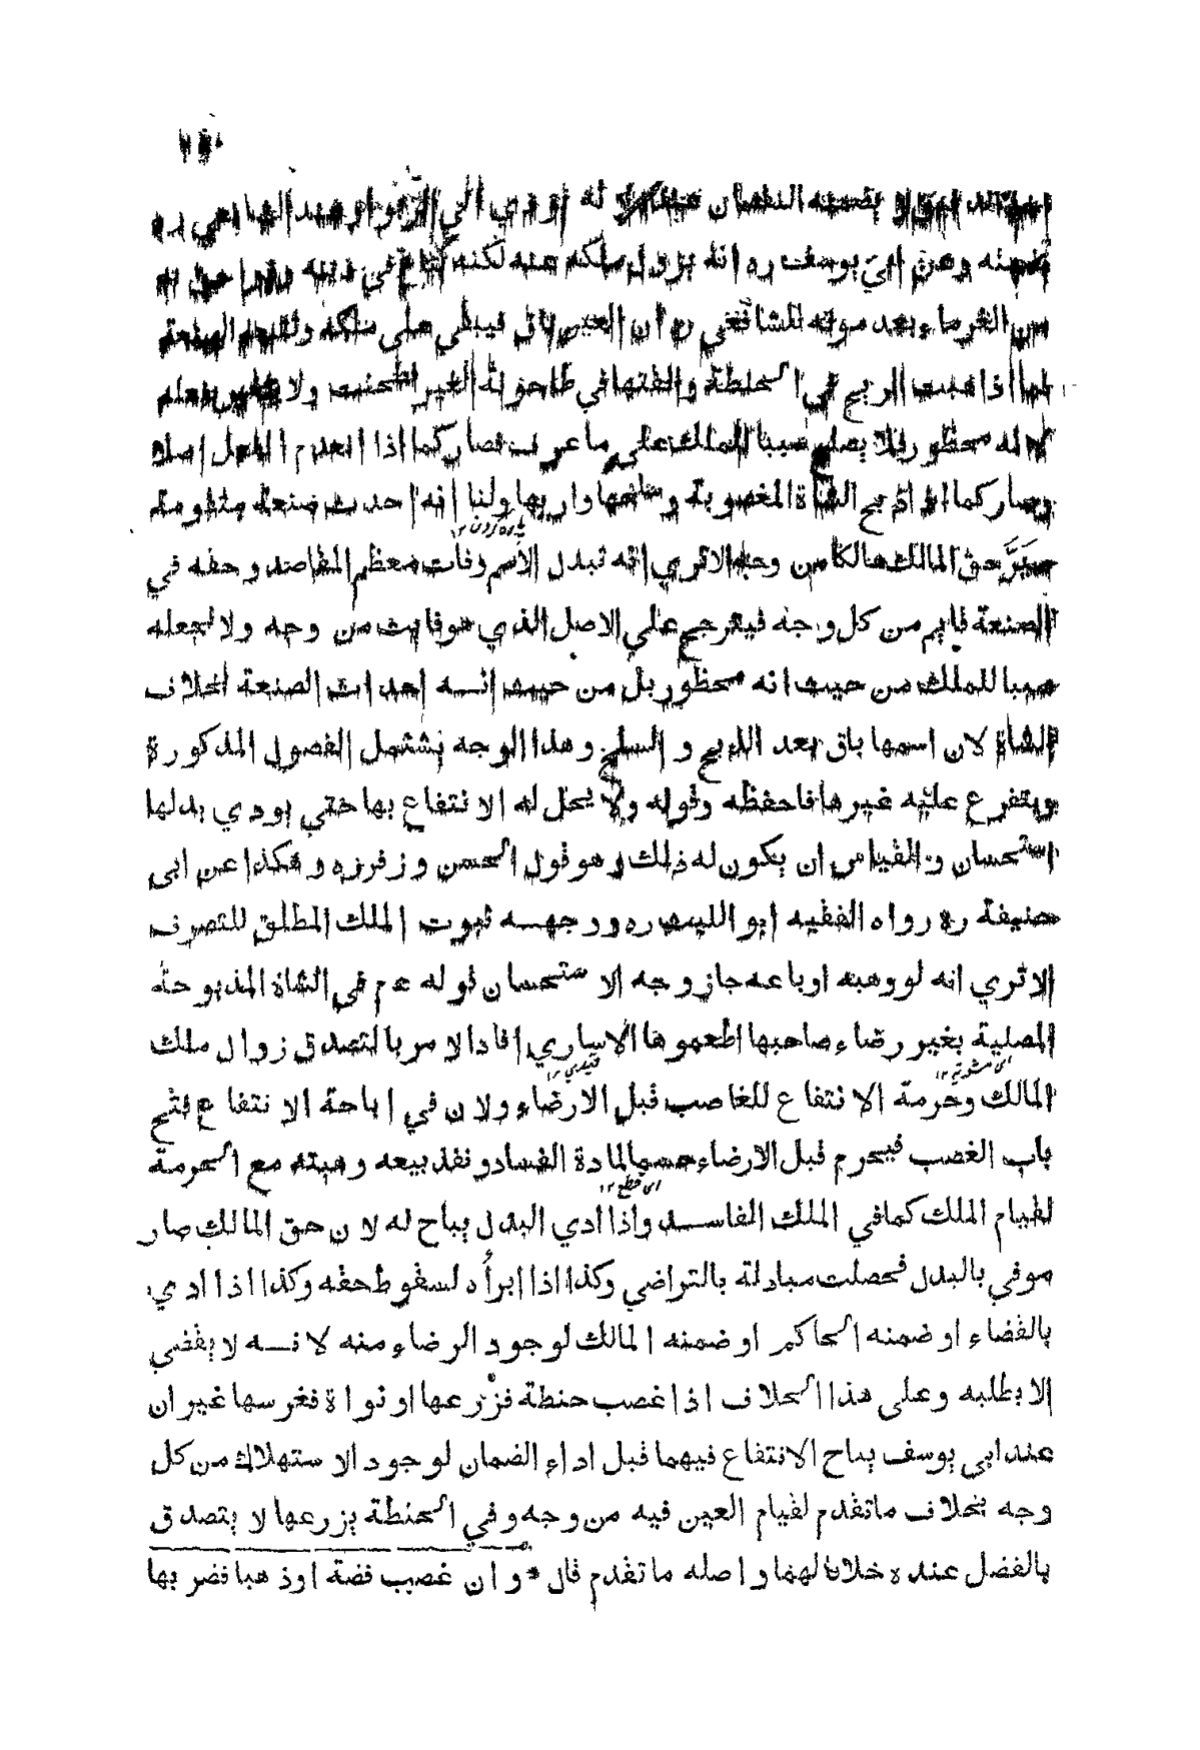 النقصان لانه يودي الي الربوا وعند الشافعي ره
يضمنه وعن ابي يوسف ره انه يزول ملكه عنه لكنه يباع في دينه وهو احق به
من الغرماء بعد موته للشافعي ره ان العين باق فيبقي علي ملكه وتتبعه الصنعة
كما اذا هبت الريح في الحنطة والقتها في طاحونة الغير فطحنت ولا معتبر بفعله
لانه محظور فلا يصلح سببا للملك علي ما عرف فصار كما اذا انعدم الفعل اصلا
وصار كما اذا ذبح الشاة المغصوبة وسلخها واربها ولنا انه احدث صنعة متقومة
صير حق المالك هالكا من وجه الا تري انه تبدل الاسم وفات معظم المقاصد وحقه في
الصنعة قايم من كل وجه فيترجح علي الاصل الذي هو فايت من وجه ولا نجعله
سببا للملك من حيث انه محظور بل من حيث انه احداث الصنعة بخلاف
الشاة لان اسمها باق بعد الذبح و السلخ وهذا الوجه يشتمل الفصول المذكورة
ويتفرع عليه غيرها فاحفظه وقوله ولا يحل له الانتفاع بها حتي يودي بدلها
استحسان والقياس ان يكون له ذلك وهو قول الحسن وزفر ره وهكذا عن ابي
حنيفة ره رواه الفقيه ابو الليث ره ووجهه ثبوت الملك المطلق للتصرف
الا تري انه لو وهبه او باعه جاز وجه الاستحسان قوله عم في الشاة المذبوحة
المصلية بغير رضاء صاحبها اطعموها الاساري افاد الامر بالتصدق زوال ملك
المالك وحرمة الانتفاع للغاصب قبل الارضاء ولان في اباحة الانتفاع فتح
باب الغصب فيحرم قبل الارضاء حسما لمادة الفساد ونفذ بيعه وهبته مع الحرمة
لقيام الملك كما في الملك الفاسد واذا ادي البدل يباح له لان حق المالك صار
موفي بالبدل فحصلت مبادلة بالتراضي وكذا اذا ابرأه لسقوط حقه وكذا اذا ادي
بالقضاء او ضمنه الحاكم او ضمنه المالك لوجود الرضاء منه لانه لا يقضي
الا بطلبه وعلي هذا الخلاف اذا غصب حنطة فزرعها او نواة فغرسها غير ان
عند ابي يوسف يباح الانتفاع فيهما قبل اداء الضمان لوجود الاستهلاك من كل
وجه بخلاف ما تقدم لقيام العين فيه من وجه وفي الحنطة يزرعها لا يتصدق
بالفضل عنده خلافا لهما واصله ما تقدم قال * وان غصب فضة او ذهبا فضربها